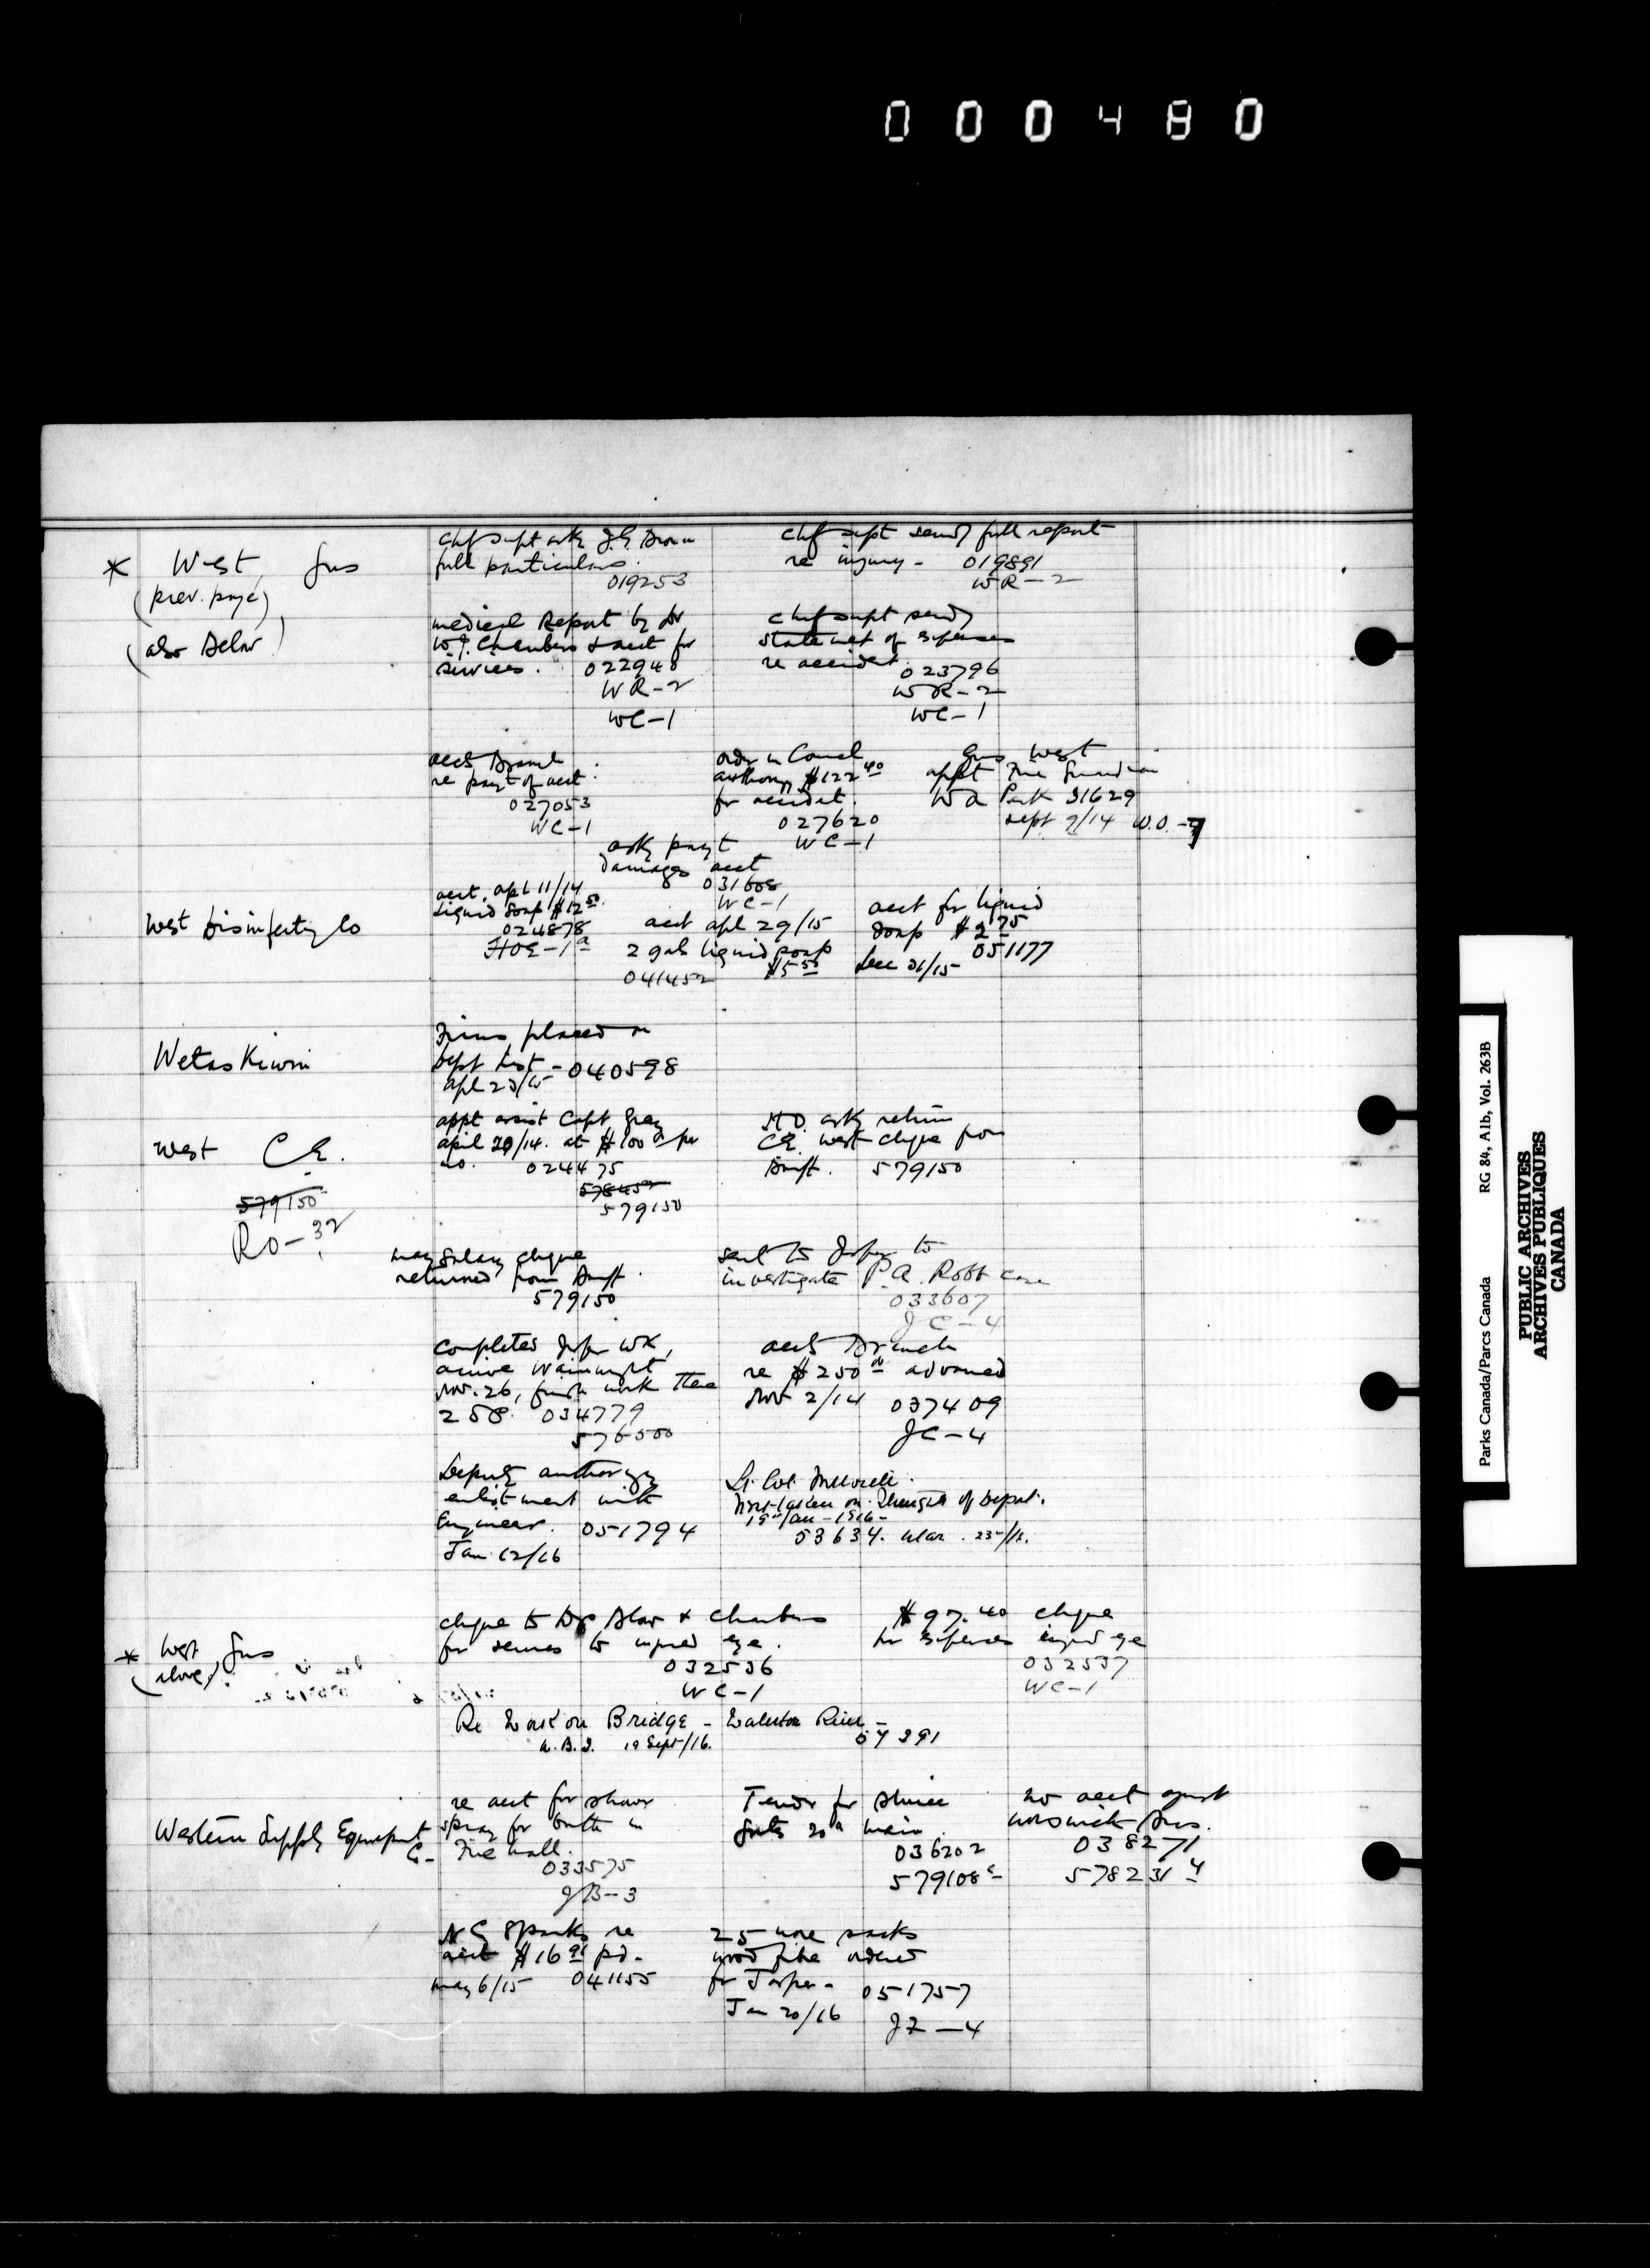 000480
* West, Gus
(prev. page)
(also below)
Chf supt asks J.G. Brown
full particulars.
019253
Chf supt sends full report
re injury - 019891
WR-2
medical Report by Dr
W.J. Chambers & acct for
services. 022948
WR-2
WC-1
Chf supt sends
statement of expenses
re accident. 023796
WR-2
WC-1
accts Branch
re payt of acct.
027053
WC-1
order in Council
authorizg $122.40
for accident.
027620
WC-1
Gus West
appt Fire Guardian
Wa Park 31629
Sept 9/14 W.O.-7
asks payt
damages acct
031608
WC-1
West Disinfectg Co
acct. apl 11/14
Liquid Soap $12.50.
024878
HOE-1a
acct apl 29/15
2 gals liquid soap
$5.50
041452
acct for liquid
soap $2.75
051177
Dec 31/15
Wetaskiwin
Firms placed on
Dept list - 040598
apl 23/15
West C.E.
579150
RO-32
appt assist Capt Gray
april 20/14. at $100 per
mo. 024475
578452
579150
H.O. asks return
C.E. West cheque from
Banff. 579150
may salary cheque
returned from Banff.
579150
sent to Jasper to
investigate P.A. Robb case
033607
JC-4
Completes Jasper Wk,
arrive Wainwright
Nov. 26, finish work there
258. 034779
576500
accts Branch
re $250.00 advanced
Nov 2/14 037409
JC-4
Deputy authorizg
enlistment with
Engineers. 051794
Jan 12/16
Lt. Col. Melville.
West taken on strength of Depot.
19th Jan - 1916 -
53634. Mar. 23rd/16.
* West, Gus
(above)
cheque to Drs Blow & Chambers
for services to injured eye.
032536
WC-1
$97.40 cheque
for expenses injured eye
032537
WC-1
Re Work on Bridge - Waterton River -
W.B.I. 19 Sept/16. 57391
Western Supply Equipment Co-
re acct for shower
spray for bath in
Fire hall.
033575
JB-3
Tender for sluice
gate 20" main.
036202
579108
no acct against
Worswick Bros.
038271
578231
N C Sparks re
acct $16.95 pd.
may 6/15 041155
25 more sacks
wood fibre ordered
for Jasper - 051757
Jan 20/16
JZ-4
Parks Canada/Parcs Canada RG 84, A1b, Vol. 263B
PUBLIC ARCHIVES
ARCHIVES PUBLIQUES
CANADA